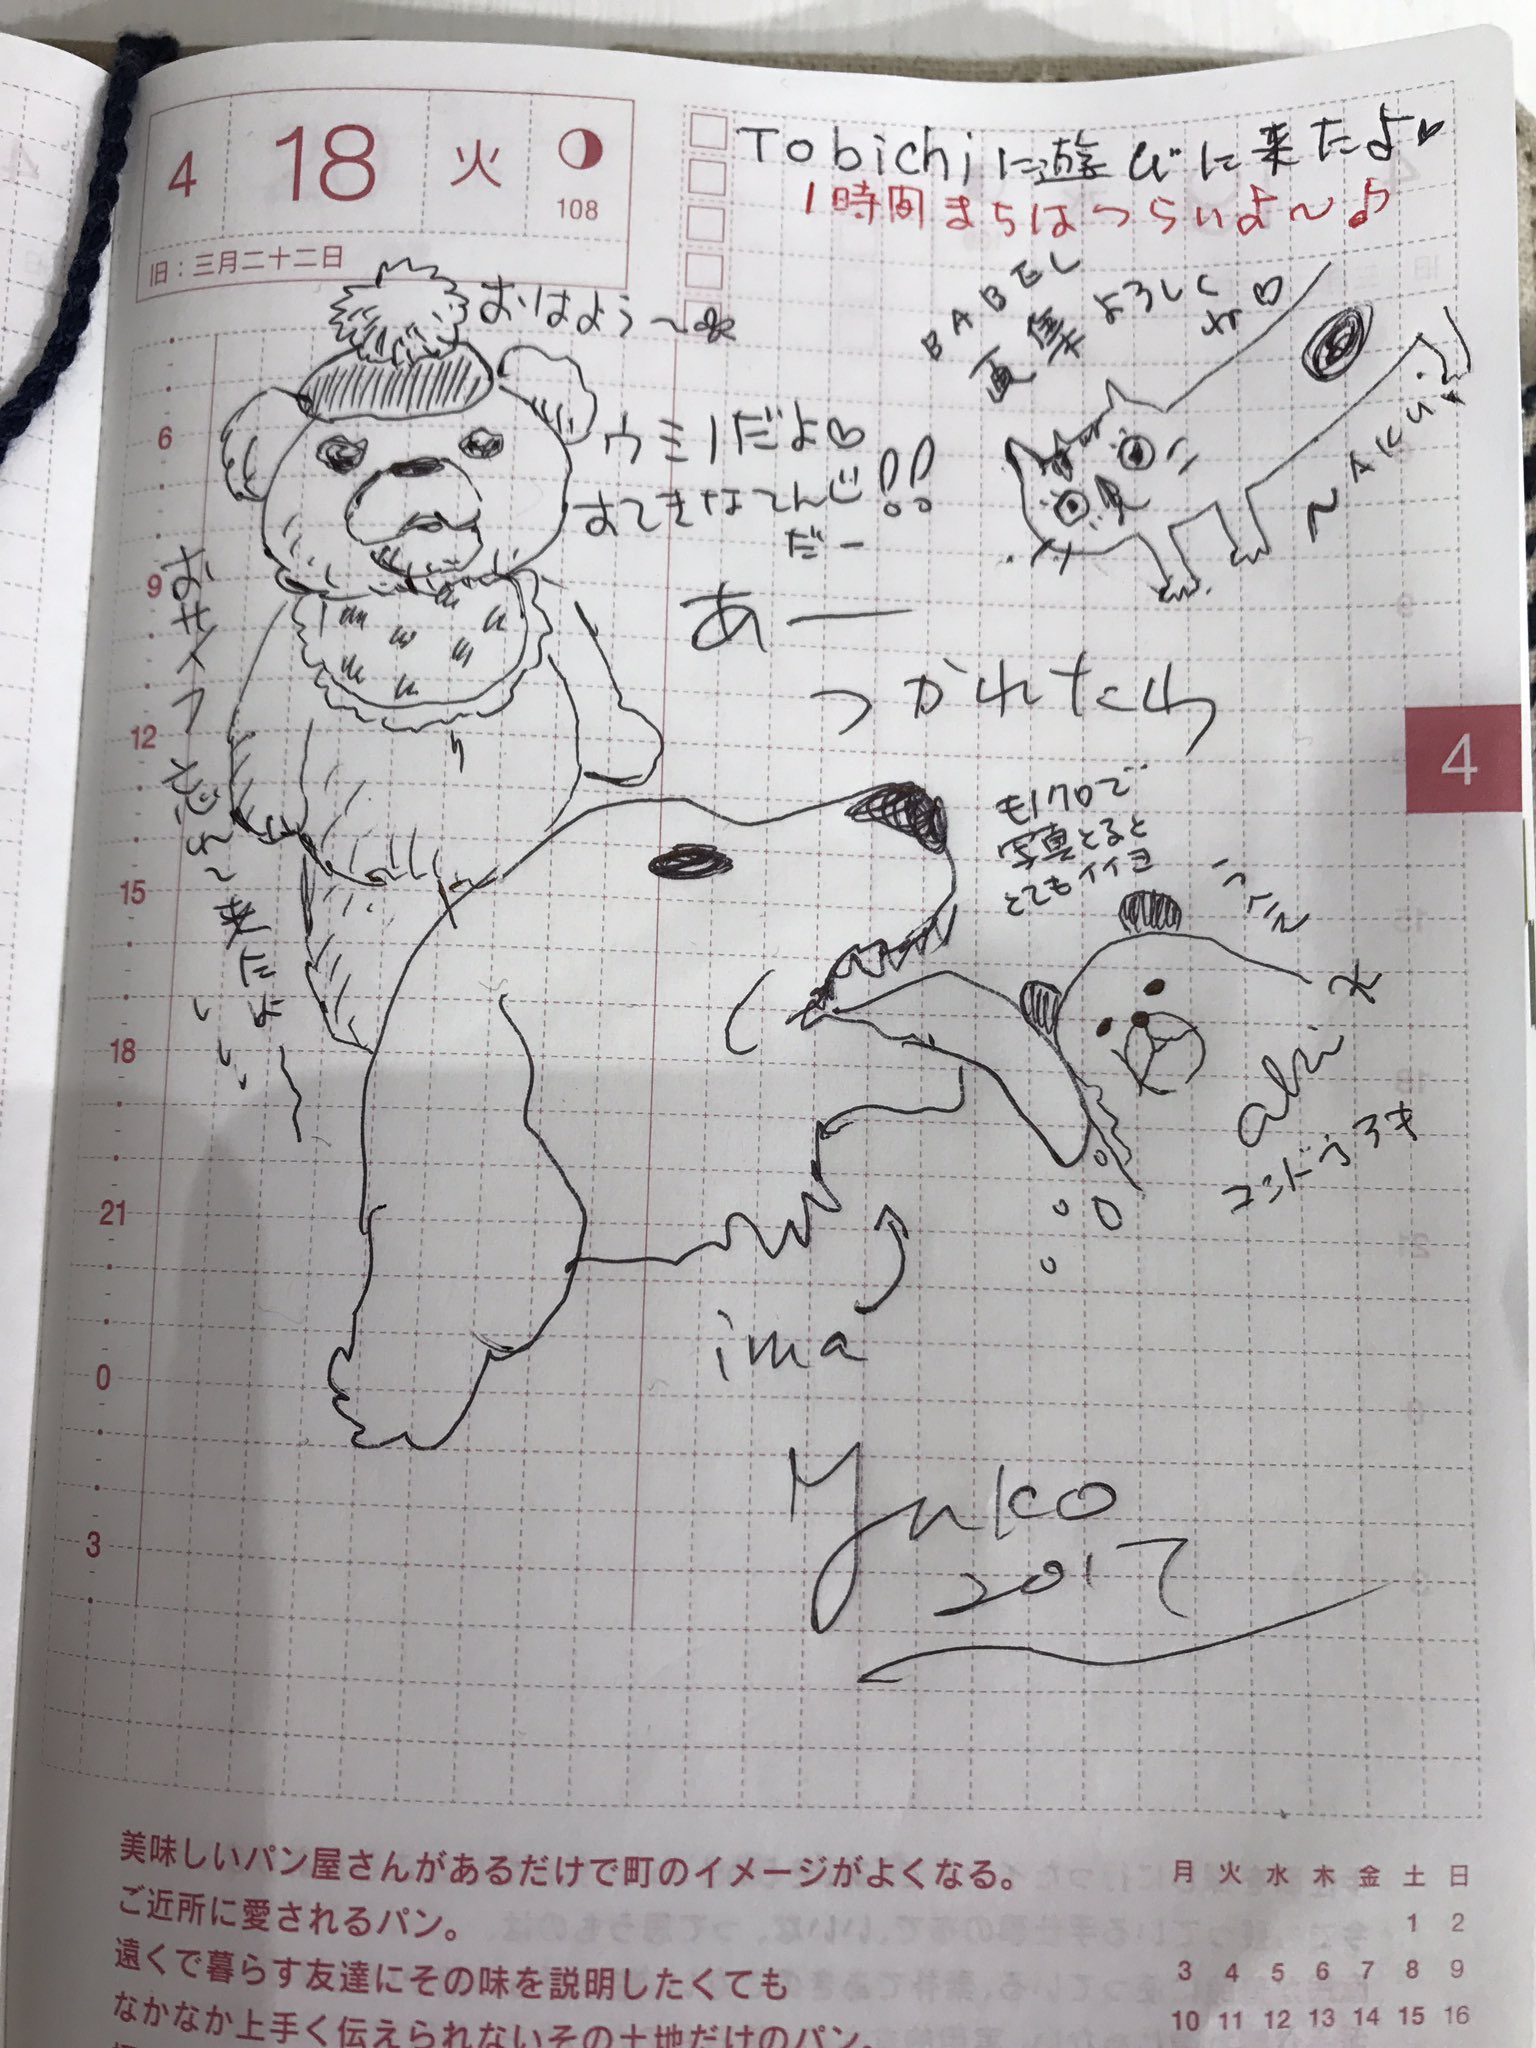 4 18 火
108
旧：三月二十二日
Tobichiに遊びに来たよ♡
1時間まちはつらいよ〜♪
おはよう〜
BABEL
画集よろしく
ね♡
ウミノだよ♡
すてきなてんじ!!
だー
NAKU
おサイフ忘れて来たよ
あー
つかれたわ
モノクロで
写真とると
とてもイイヨ
aki
コンドウアキ
ima
Yuko
2017
6
9
12
15
18
21
0
3
4
美味しいパン屋さんがあるだけで町のイメージがよくなる。
ご近所に愛されるパン。
遠くで暮らす友達にその味を説明したくても
なかなか上手く伝えられないその土地だけのパン。
月 火 水 木 金 土 日
1 2
3 4 5 6 7 8 9
10 11 12 13 14 15 16